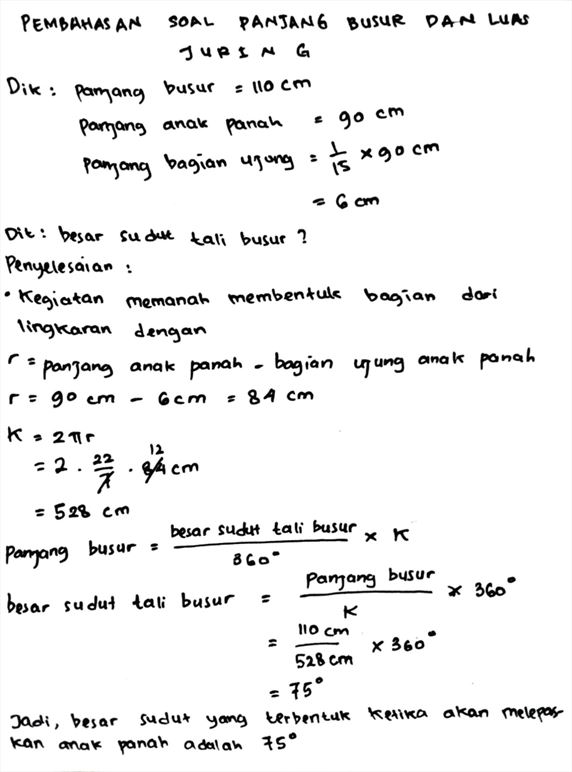 PEMBAHASAN SOAL PANJANG BUSUR DAN LUAS
JURING
Dik : panjang busur = 110 cm
panjang anak panah = 90 cm
panjang bagian ujung = 1/15 × 90 cm
= 6 cm
Dit : besar sudut tali busur ?
Penyelesaian :
• Kegiatan memanah membentuk bagian dari
lingkaran dengan
r = panjang anak panah - bagian ujung anak panah
r = 90 cm - 6 cm = 84 cm
K = 2πr
= 2 . 22/7 . 84 cm 12
= 528 cm
Panjang busur = besar sudut tali busur/360° × K
besar sudut tali busur = panjang busur/K × 360°
= 110 cm/528 cm × 360°
= 75°
Jadi, besar sudut yang terbentuk ketika akan melepas
kan anak panah adalah 75°